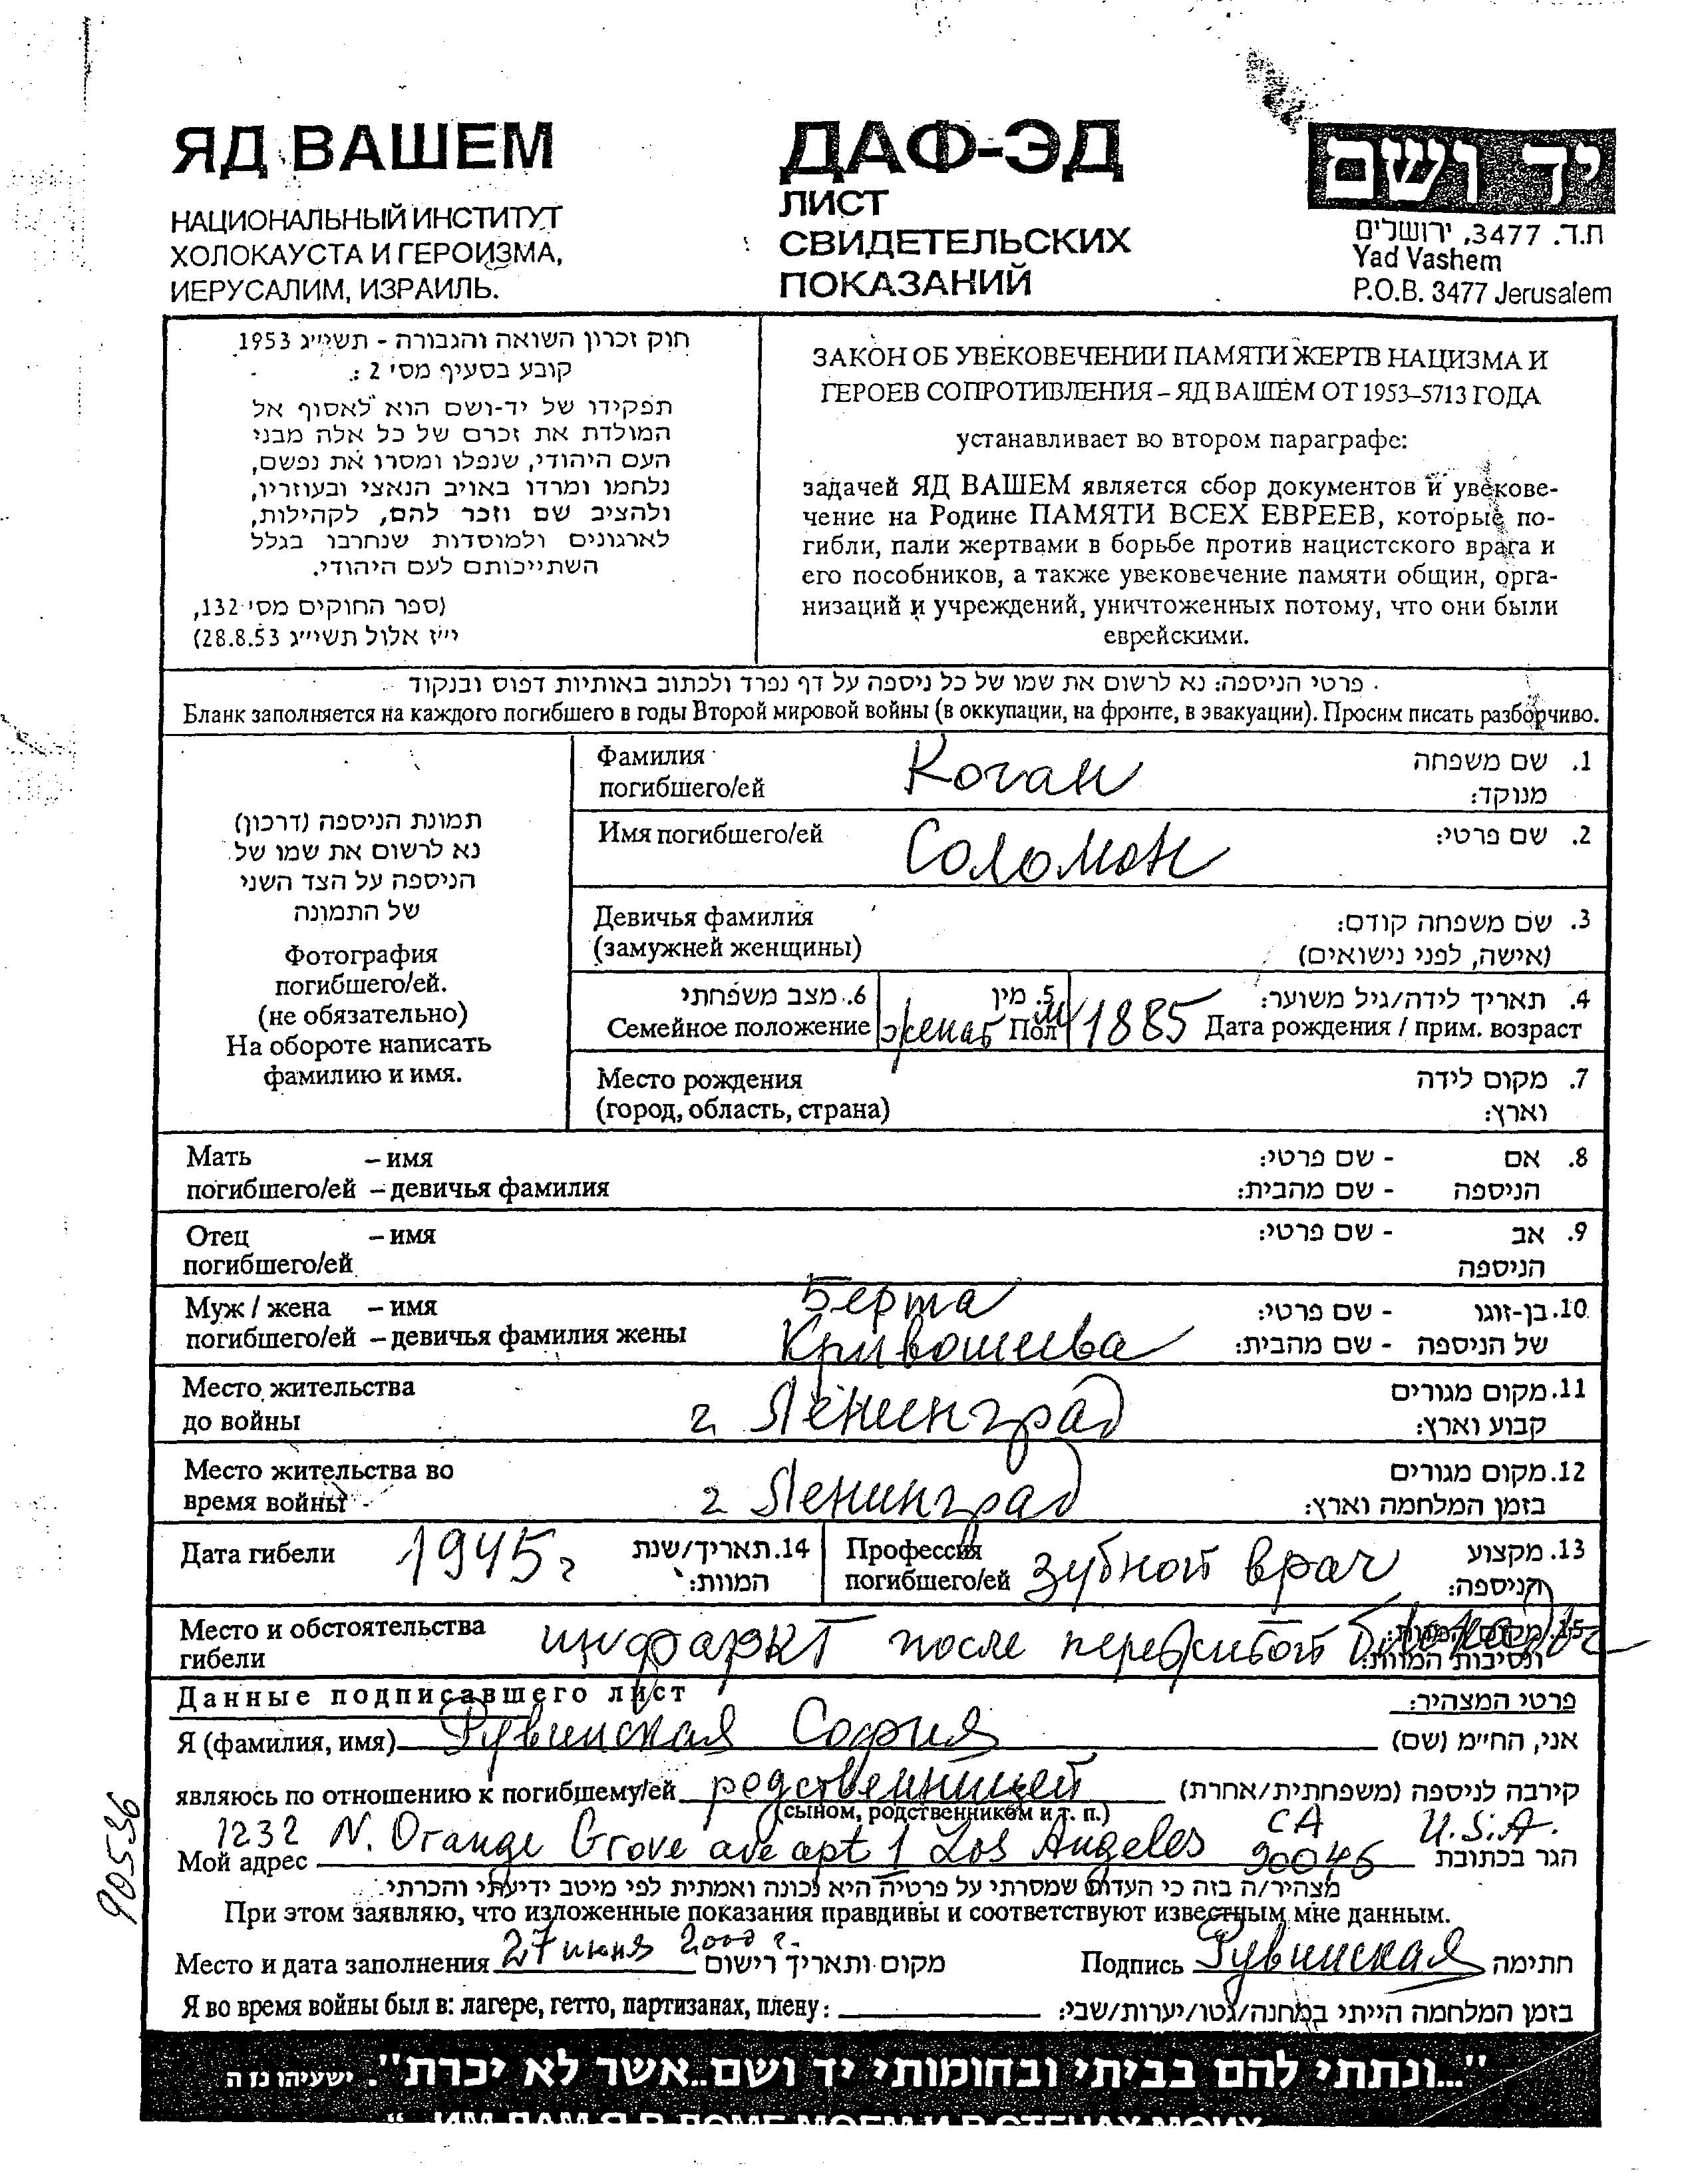 ЯД ВАШЕМ
НАЦИОНАЛЬНЫЙ ИНСТИТУТ
ХОЛОКАУСТА И ГЕРОИЗМА,
ИЕРУСАЛИМ, ИЗРАИЛЬ.
ДАФ-ЭД
ЛИСТ
СВИДЕТЕЛЬСКИХ
ПОКАЗАНИЙ
יד ושם
ת.ד. 3477, ירושלים
Yad Vashem
P.O.B. 3477 Jerusalem
חוק זכרון השואה והגבורה - תשי״ג 1953
קובע בסעיף מס׳ 2 :
תפקידו של יד-ושם הוא לאסוף אל
המולדת את זכרם של כל אלה מבני
העם היהודי, שנפלו ומסרו את נפשם,
נלחמו ומרדו באויב הנאצי ובעוזריו,
ולהציב שם וזכר להם, לקהילות,
לארגונים ולמוסדות שנחרבו בגלל
השתייכותם לעם היהודי.
(ספר החוקים מס׳ 132,
י״ז אלול תשי״ג 28.8.53)
ЗАКОН ОБ УВЕКОВЕЧЕНИИ ПАМЯТИ ЖЕРТВ НАЦИЗМА И
ГЕРОЕВ СОПРОТИВЛЕНИЯ – ЯД ВАШЕМ ОТ 1953–5713 ГОДА
устанавливает во втором параграфе:
задачей ЯД ВАШЕМ является сбор документов и увекове-
чение на Родине ПАМЯТИ ВСЕХ ЕВРЕЕВ, которые по-
гибли, пали жертвами в борьбе против нацистского врага и
его пособников, а также увековечение памяти общин, орга-
низаций и учреждений, уничтоженных потому, что они были
еврейскими.
פרטי הניספה: נא לרשום את שמו של כל ניספה על דף נפרד ולכתוב באותיות דפוס ובנקוד
Бланк заполняется на каждого погибшего в годы Второй мировой войны (в оккупации, на фронте, в эвакуации). Просим писать разборчиво.
תמונת הניספה (דרכון)
נא לרשום את שמו של
הניספה על הצד השני
של התמונה
Фотография
погибшего/ей.
(не обязательно)
На обороте написать
фамилию и имя.
Фамилия Коган 1. שם משפחה
погибшего/ей מנוקד:
Имя погибшего/ей Соломон 2. שם פרטי:
Девичья фамилия 3. שם משפחה קודם:
(замужней женщины) (אישה, לפני נישואים)
6. מצב משפחתי 5. מין м 4. תאריך לידה/גיל משוער:
Семейное положение женат Пол 1885 Дата рождения / прим. возраст
Место рождения 7. מקום לידה
(город, область, страна) וארץ:
Мать – имя - שם פרטי: 8. אם
погибшего/ей – девичья фамилия - שם מהבית: הניספה
Отец – имя - שם פרטי: 9. אב
погибшего/ей הניספה
Муж / жена – имя Берта - שם פרטי: 10. בן-זוגו
погибшего/ей – девичья фамилия жены Кривошеева - שם מהבית: של הניספה
Место жительства 11. מקום מגורים
до войны г Ленинград קבוע וארץ:
Место жительства во 12. מקום מגורים
время войны г Ленинград בזמן המלחמה וארץ:
Дата гибели 1945 г 14. תאריך/שנת Профессия зубной врач 13. מקצוע
המוות: погибшего/ей הניספה:
Место и обстоятельства инфаркт после пережитой блокады 15.
гибели ונסיבות המוות:
Данные подписавшего лист פרטי המצהיר:
Я (фамилия, имя) Рувинская София אני, הח״מ (שם)
являюсь по отношению к погибшему/ей родственницей קירבה לניספה (משפחתית/אחרת)
(сыном, родственником и т. п.)
1232 N. Orange Grove ave apt 1 Los Angeles CA U.S.A.
Мой адрес 90046 הגר בכתובת
מצהיר/ה בזה כי העדות שמסרתי על פרטיה היא נכונה ואמתית לפי מיטב ידיעתי והכרתי.
При этом заявляю, что изложенные показания правдивы и соответствуют известным мне данным.
Место и дата заполнения 27 июня 2000 г. מקום ותאריך רישום Подпись Рувинская חתימה
Я во время войны был в: лагере, гетто, партизанах, плену: בזמן המלחמה הייתי במחנה/גטו/יערות/שבי:
905536
"...ונתתי להם בביתי ובחומותי יד ושם..אשר לא יכרת". ישעיהו נז ה